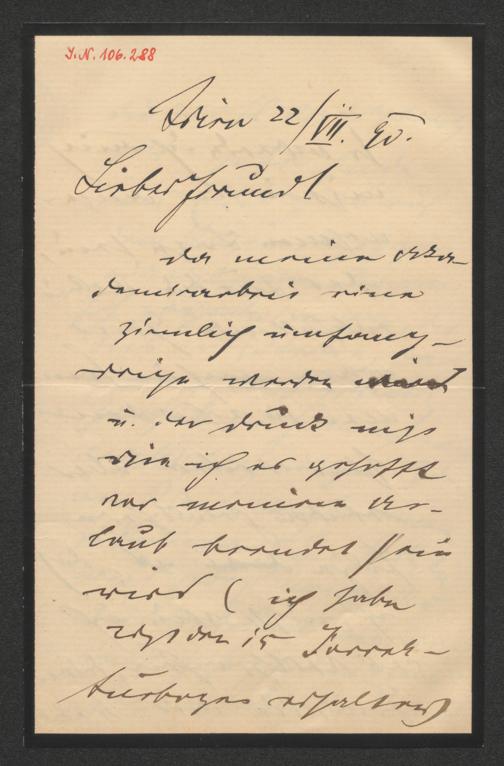 I.N. 106.288
Wien 22/VII. 90.
Lieber Freund!
da meine Aka-
demiearbeit eine
ziemlich umfang-
reiche werden
u. der Druck nicht
wie ich es gehofft
vor meinem Ur-
laub beendet sein
wird (ich habe
erst den 15 Correk-
turbogen erhalten)